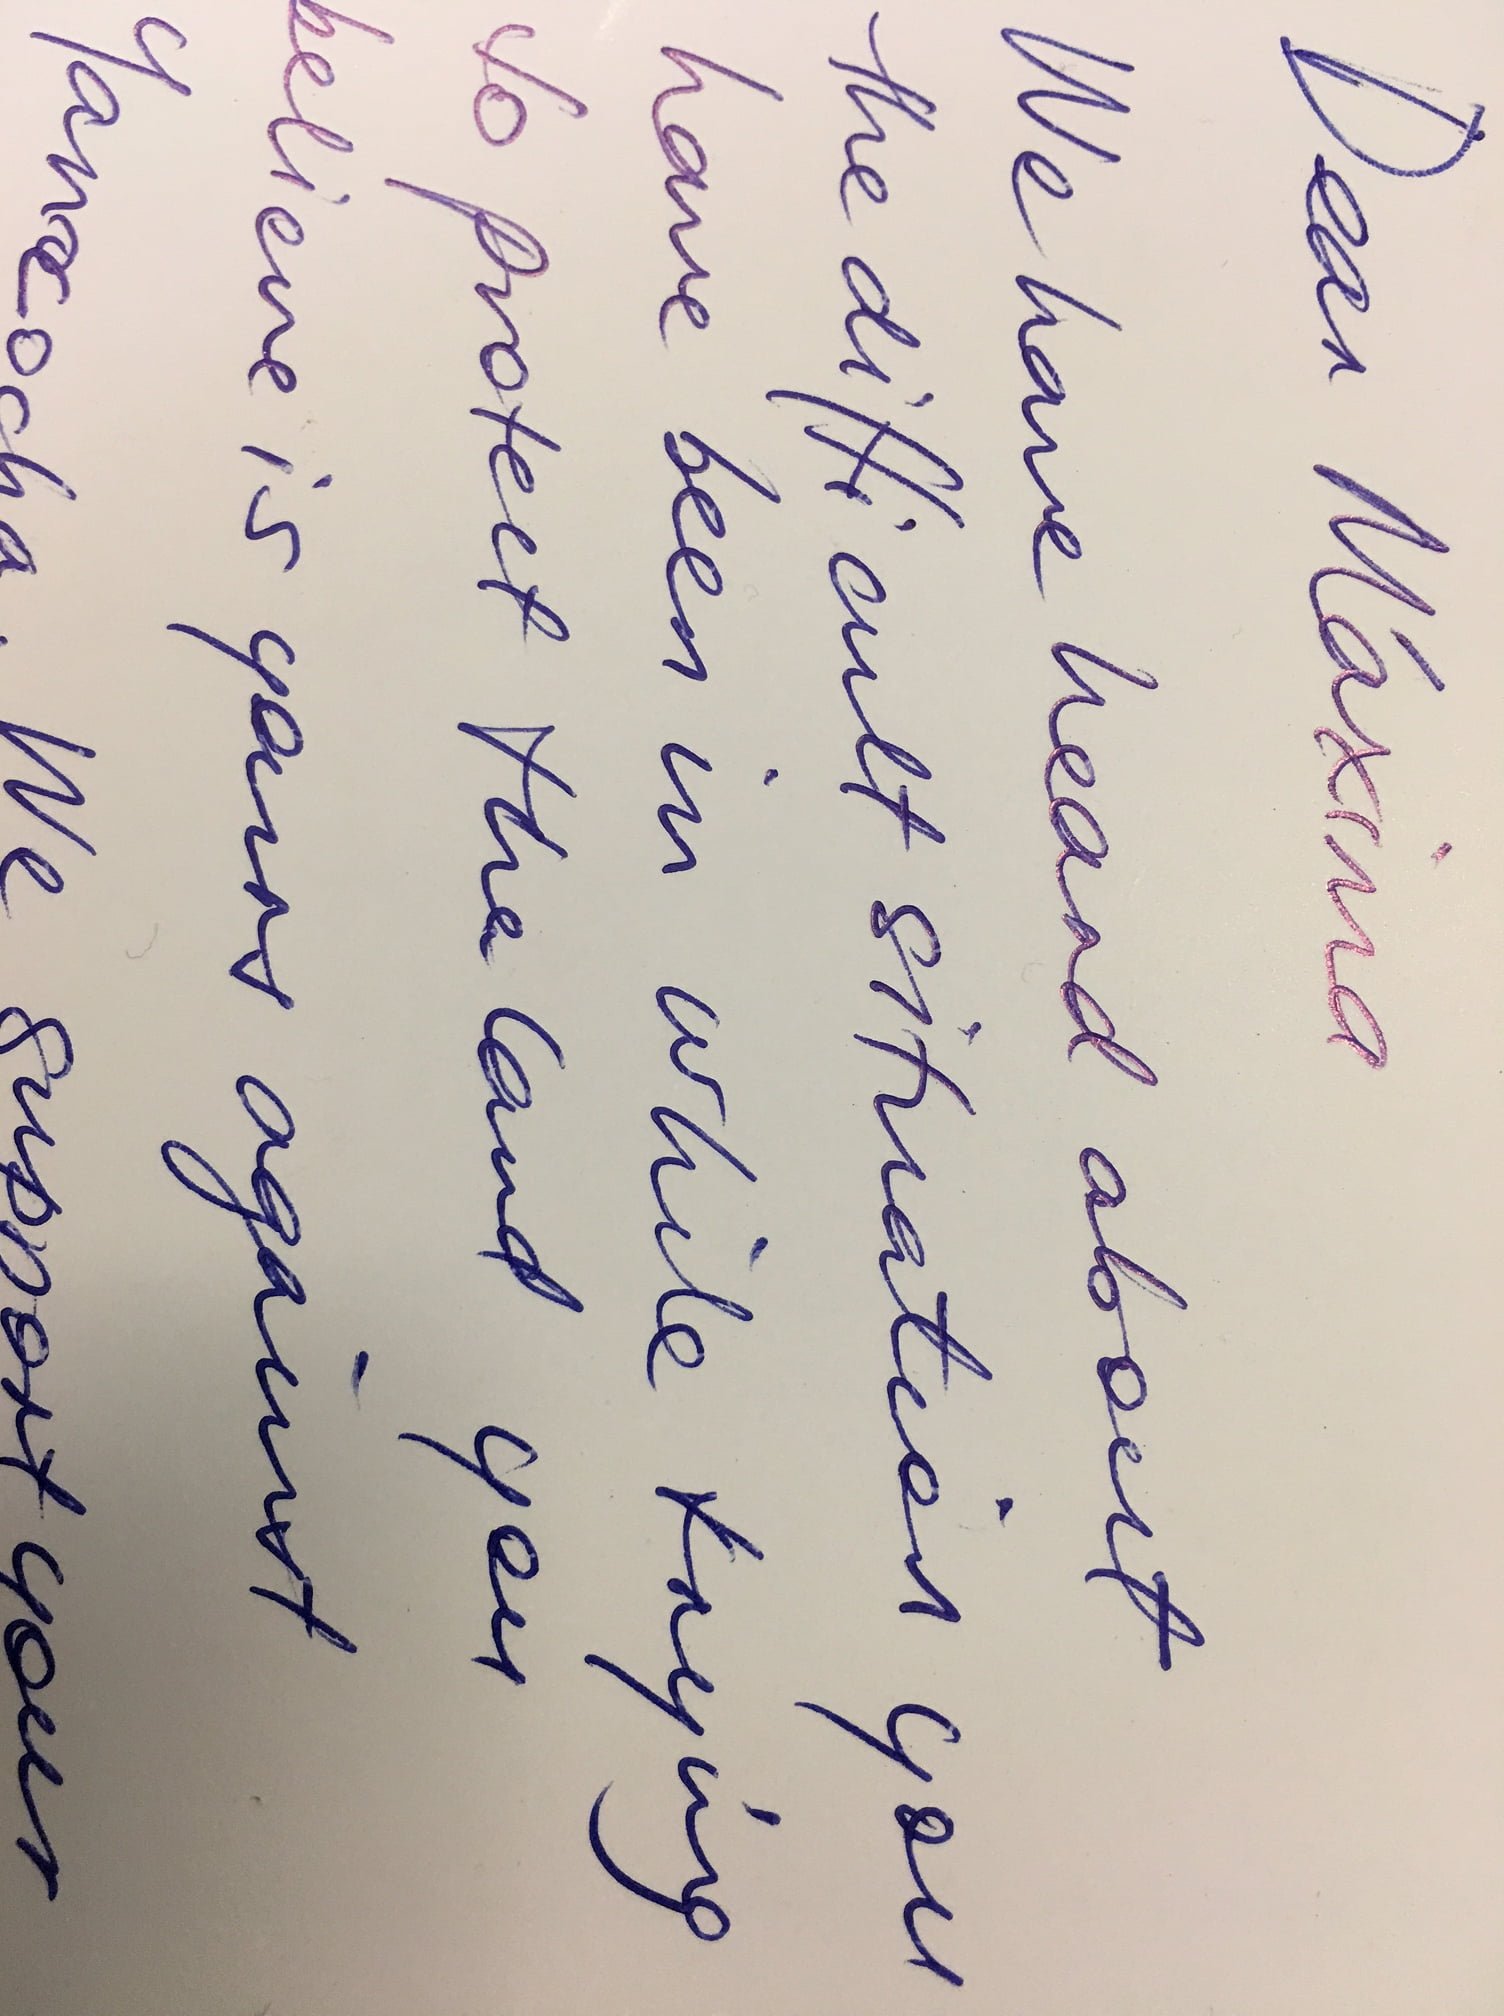 Dear Máxima
We have heard about
the difficult situation you
have been in while trying
to protect the land you
believe is yours against
Yanacocha. We support your